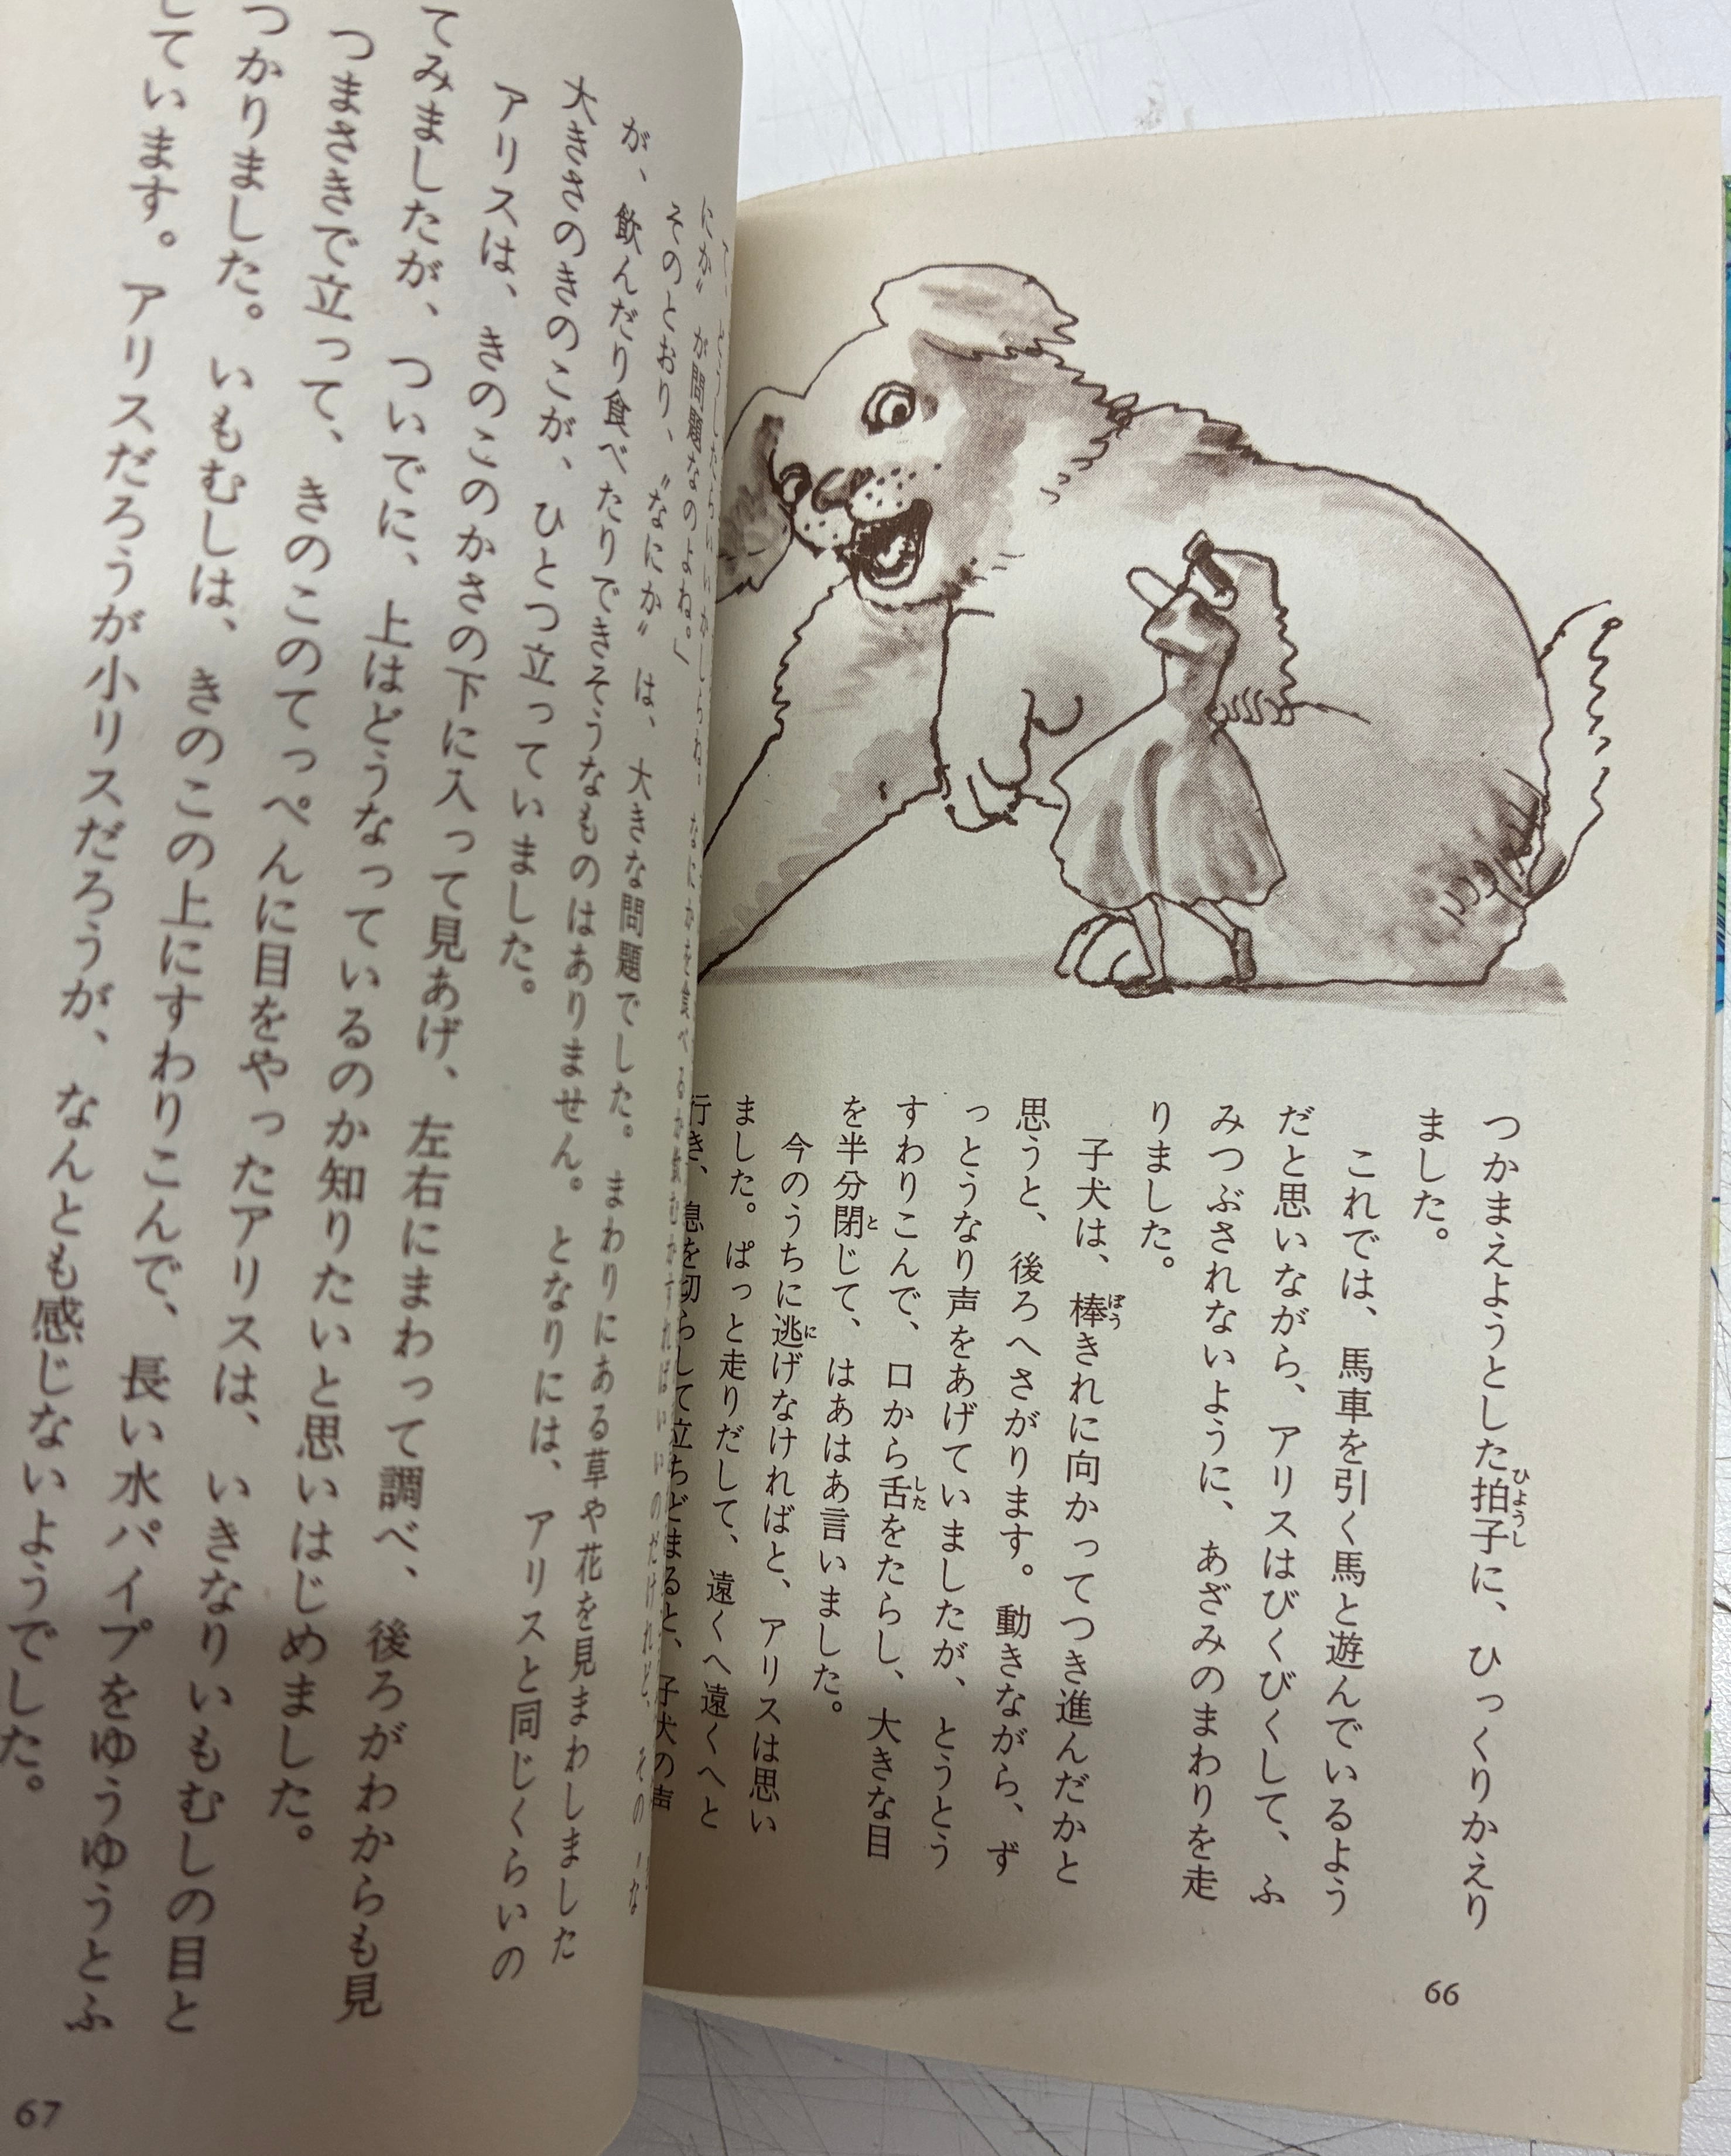 つかまえようとした拍子に、ひっくりかえり
ました。
これでは、馬車を引く馬と遊んでいるよう
だと思いながら、アリスはびくびくして、ふ
みつぶされないように、あざみのまわりを走
りました。
子犬は、棒きれに向かってつき進んだかと
思うと、後ろへさがります。動きながら、ず
っとうなり声をあげていましたが、とうとう
すわりこんで、口から舌をたらし、大きな目
を半分閉じて、はあはあ言いました。
今のうちに逃げなければと、アリスは思い
ました。ぱっと走りだして、遠くへ遠くへと
行き、息を切らして立ちどまると、子犬の声
66
にか〟が問題なのよね。」
そのとおり、〝なにか〟は、大きな問題でした。まわりにある草や花を見まわしました
が、飲んだり食べたりできそうなものはありません。となりには、アリスと同じくらいの
大きさのきのこが、ひとつ立っていました。
アリスは、きのこのかさの下に入って見あげ、左右にまわって調べ、後ろがわからも見
てみましたが、ついでに、上はどうなっているのか知りたいと思いはじめました。
つまさきで立って、きのこのてっぺんに目をやったアリスは、いきなりいもむしの目と
つかりました。いもむしは、きのこの上にすわりこんで、長い水パイプをゆうゆうとふ
しています。アリスだろうが小リスだろうが、なんとも感じないようでした。
67